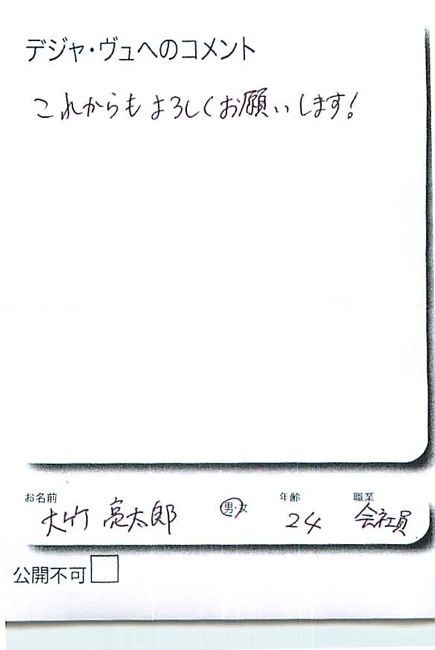 デジャ・ヴュへのコメント
これからもよろしくお願いします!
お名前 男・女 年齢 職業
大竹 亮太郎 24 会社員
公開不可